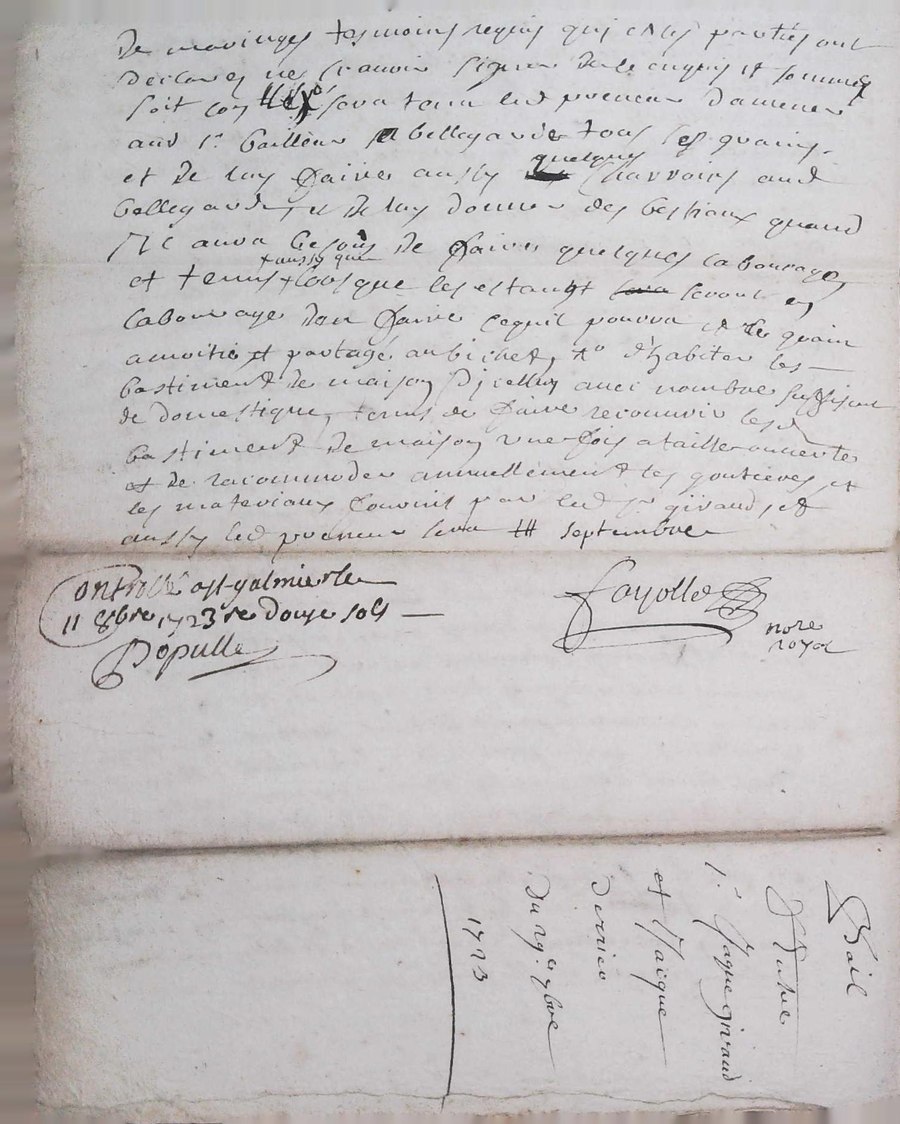 de maringes tesmoins requis qui et les parties ont
declares ne scavoir signer de le enquis et sommes
soit con sera tenu led preneur damener
aud sr bailleur a bellegarde tous les grains
et de luy faire aussy quelques charroirs aud
bellegarde, et de luy donner des bestiaux quand
il aura besoin de faire quelques labourages
+ aussy que
et tenus + lorsque les estangt seront en
labourage den faire ce quil pourra et le grain
a moitie et partagé au bichet, to dhabiter les
bastiment de maison dicelluy avec nombre suffisant
de domestique, tenus de faire recouvrir lesd
bastiment de maison une fois a taille ouverte
et de racommoder annuellement les goutieres et
les materiaux fournis par led sr giraud, et
aussy led preneur sera septembre
Controllé a st galmier le
11 8bre 1723 re douze sols
Dépulle
fayolle
nore
royal
Bail
Entre
sr Jaque giraud
et Jaique
derrieo
du 29e 7bre
1723